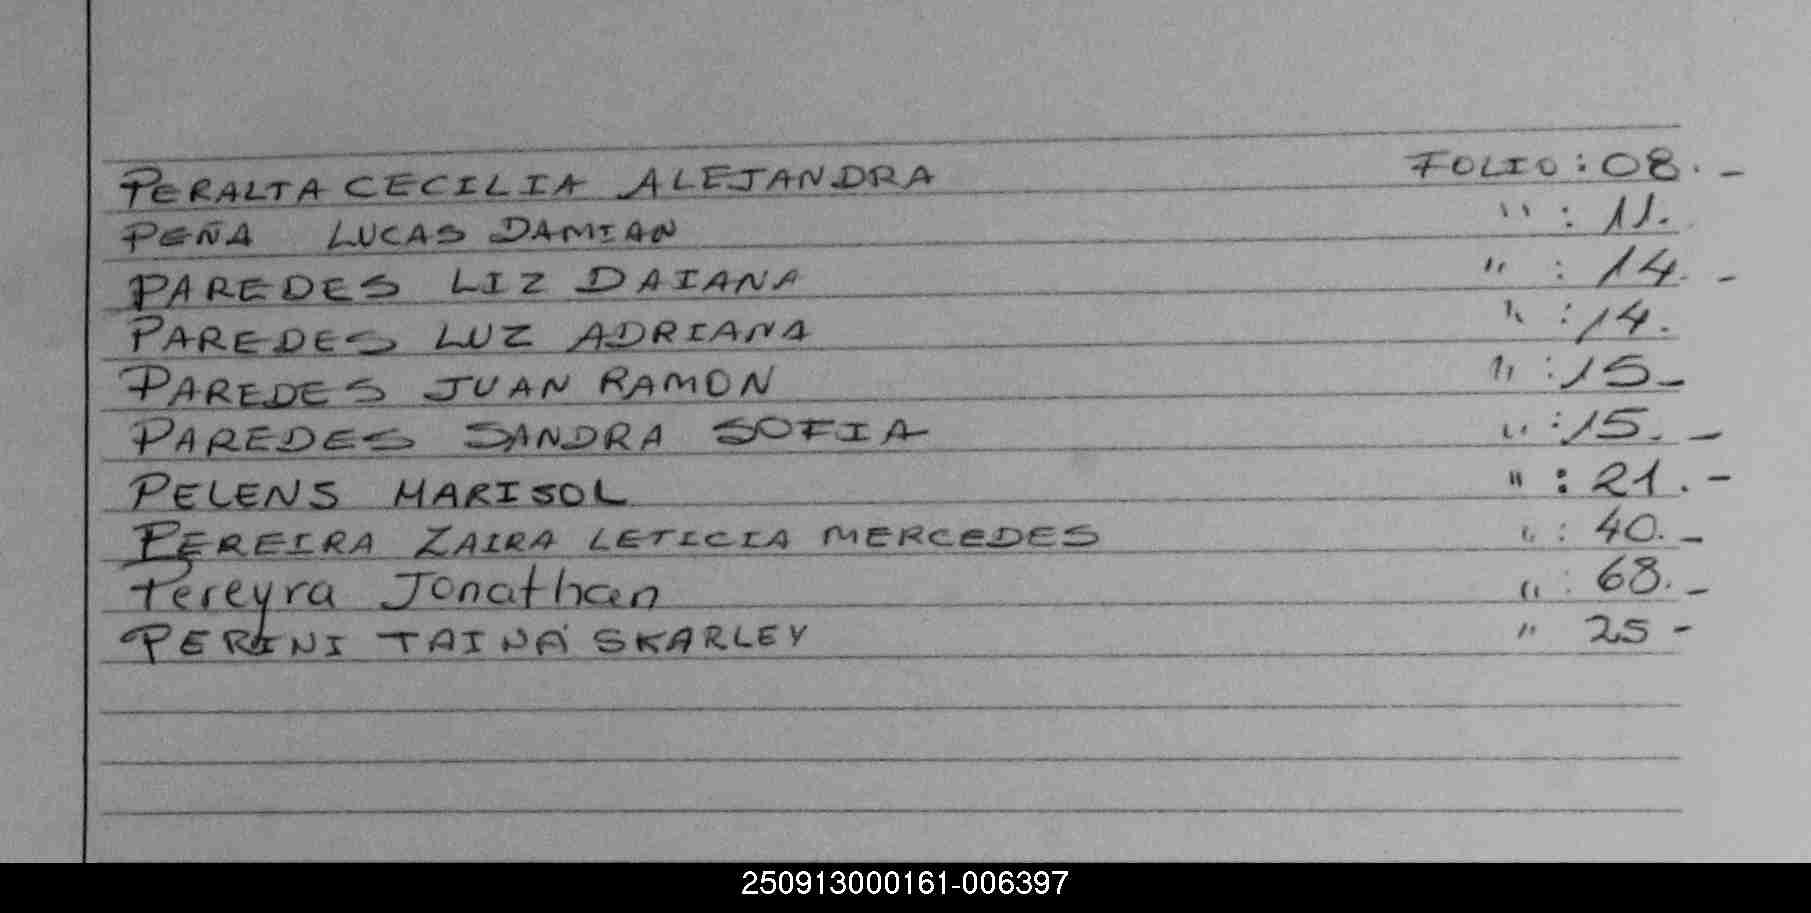 PERALTA CECILIA ALEJANDRA FOLIO : 08. -
PEÑA LUCAS DAMIAN " : 11.
PAREDES LIZ DAIANA " : 14. -
PAREDES LUZ ADRIANA " : 14.
PAREDES JUAN RAMON " : 15 -
PAREDES SANDRA SOFIA " : 15. -
PELENS MARISOL " : 21. -
PEREIRA ZAIRA LETICIA MERCEDES " : 40. -
Pereyra Jonathan " : 68. -
PERINI TAINÁ SKARLEY " 25 -
250913000161-006397